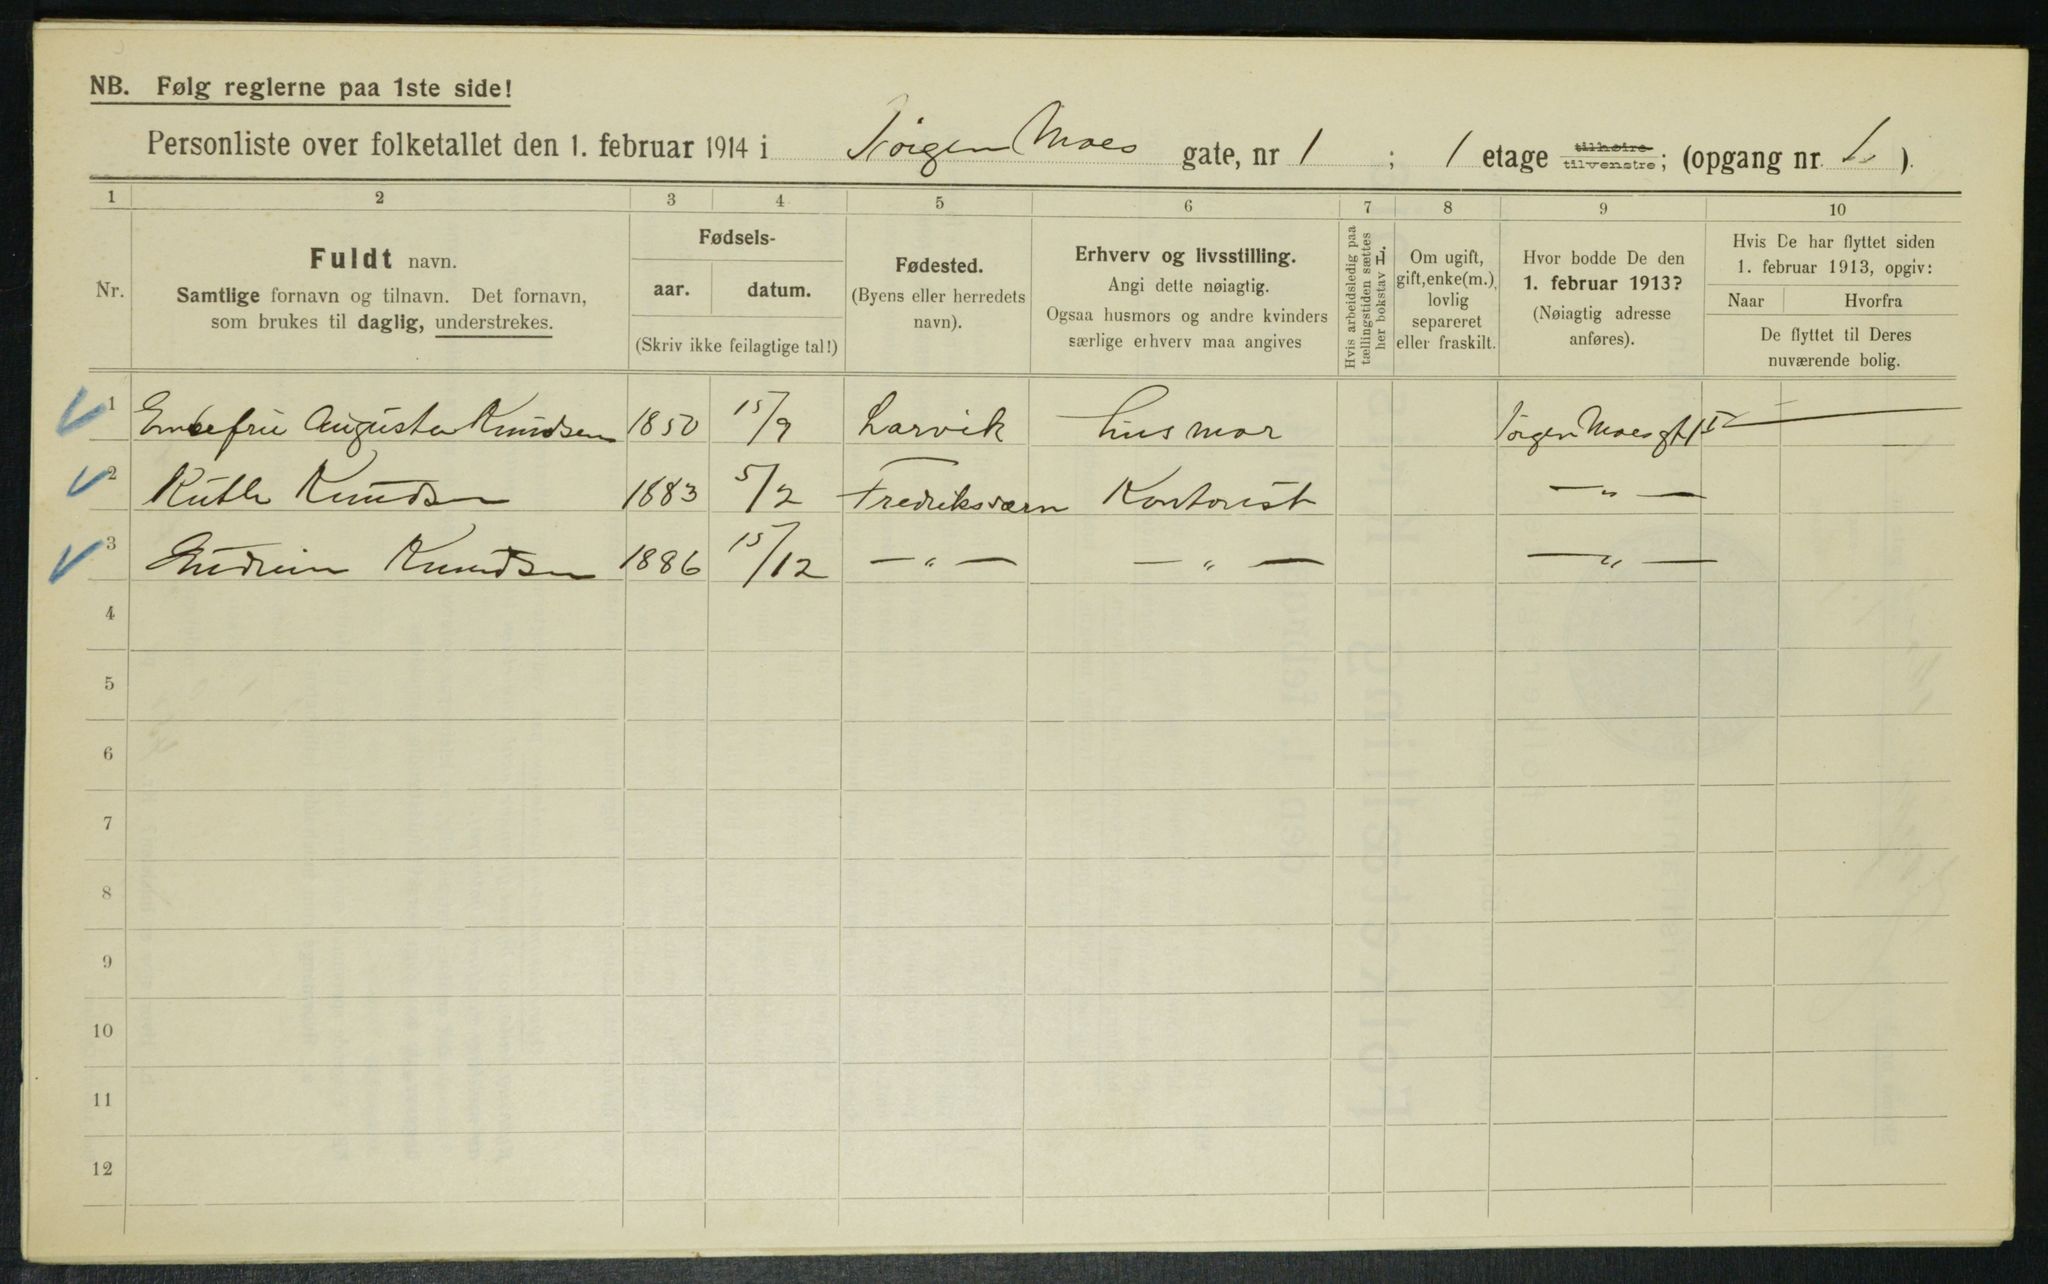 NB. Følg reglerne paa 1ste side!
Personliste over folketallet den 1. februar 1914 i Jørgen Moes gate, nr 1 ; 1 etage tilhøire tilvenstre; (opgang nr. 1 ).
1 2 3 4 5 6 7 8 9 10
Nr.
Fuldt navn.
Samtlige fornavn og tilnavn. Det fornavn,
som brukes til daglig, understrekes.
Fødsels-
aar. datum.
(Skriv ikke feilagtige tal!)
Fødested.
(Byens eller herredets
navn).
Erhverv og livsstilling.
Angi dette nøiagtig.
Ogsaa husmors og andre kvinders
særlige erhverv maa angives
Hvis arbeidsledig paa
tællingstiden sættes
her bokstav L.
Om ugift,
gift, enke(m.),
lovlig
separeret
eller fraskilt.
Hvor bodde De den
1. februar 1913?
(Nøiagtig adresse
anføres).
Hvis De har flyttet siden
1. februar 1913, opgiv:
Naar Hvorfra
De flyttet til Deres
nuværende bolig.
1 Enkefru Augusta Knudsen 1850 15/9 Larvik Husmor Jørgen Moesgt 1 I
2 Ruth Knudsen 1883 5/2 Fredriksværn Kontorist — " —
3 Gudrun Knudsen 1886 15/12 — " — — " — — " —
4
5
6
7
8
9
10
11
12